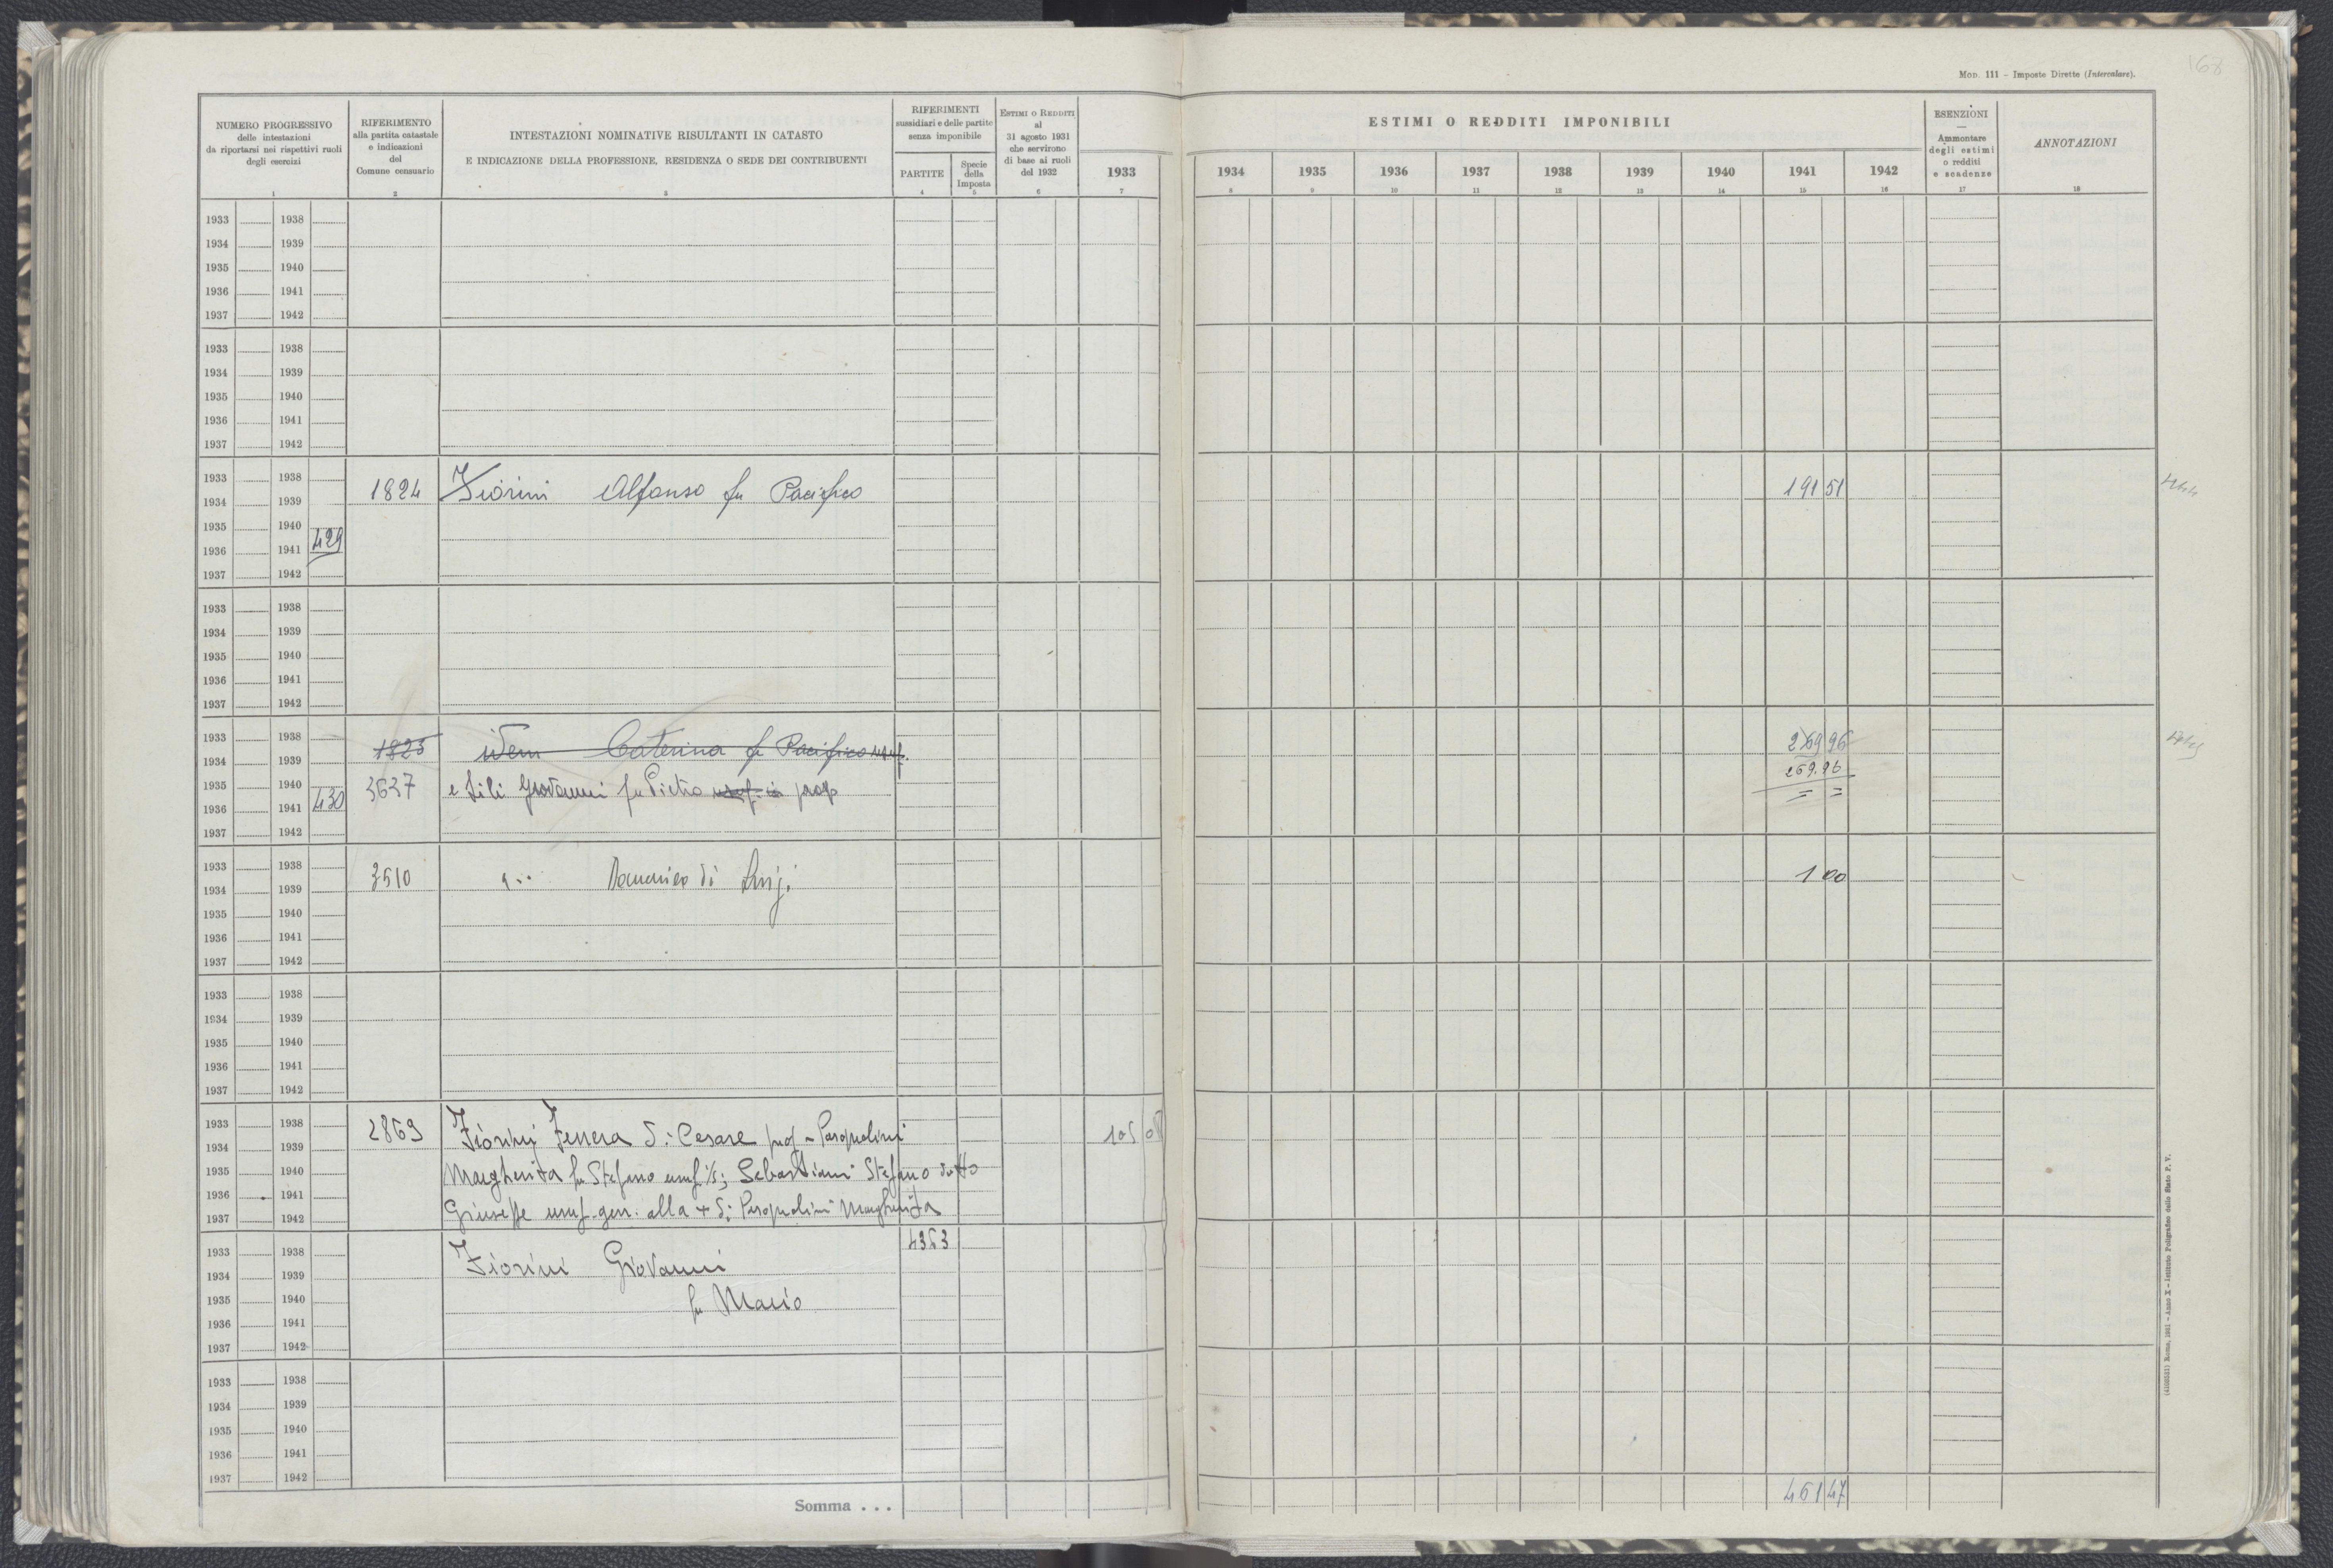 168
MOD. 111 - Imposte Dirette (Intercalare).
NUMERO PROGRESSIVO
delle intestazioni
da riportarsi nei rispettivi ruoli
degli esercizi
1
RIFERIMENTO
alla partita catastale
e indicazioni
del
Comune censuario
2
INTESTAZIONI NOMINATIVE RISULTANTI IN CATASTO
E INDICAZIONE DELLA PROFESSIONE, RESIDENZA O SEDE DEI CONTRIBUENTI
3
RIFERIMENTI
sussidiari e delle partite
senza imponibile
PARTITE
4
Specie
della
Imposta
5
ESTIMI O REDDITI
al
31 agosto 1931
che servirono
di base ai ruoli
del 1932
6
1933
7
ESTIMI O REDDITI IMPONIBILI
1934 1935 1936 1937 1938 1939 1940 1941 1942
8 9 10 11 12 13 14 15 16
ESENZIONI
—
Ammontare
degli estimi
o redditi
e scadenze
17
ANNOTAZIONI
18
1933 1938
1934 1939
1935 1940
1936 1941
1937 1942
1933 1938
1934 1939
1935 1940
1936 1941
1937 1942
1933 1938
1934 1939 1824 Fiorini Alfonso fu Pacifico 191 51
1935 1940
1936 1941 429
1937 1942
1933 1938
1934 1939
1935 1940
1936 1941
1937 1942
1933 1938
1934 1939 1825 idem Caterina fu Pacifico usuf. 269 96
1935 1940 3637 e Fili Giovanni fu Pietro prop 269.96
1936 1941 430 = =
1937 1942
1933 1938
1934 1939 3510 Domenico di Luigi 1 00
1935 1940
1936 1941
1937 1942
1933 1938
1934 1939
1935 1940
1936 1941
1937 1942
1933 1938
1934 1939 2869 Fiorini di Cesare prop 105
1935 1940 Margherita fu Stefano Sebastiani Stefano
1936 1941
1937 1942 Giuseppe usuf. gen. alla + di Margherita
1933 1938 4363
1934 1939 Fiorini Giovanni
1935 1940 fu Mario
1936 1941
1937 1942
1933 1938
1934 1939
1935 1940
1936 1941
1937 1942
Somma . . . 461 47
(4100521) Roma, 1931 - Anno X - Istituto Poligrafico dello Stato P. V.